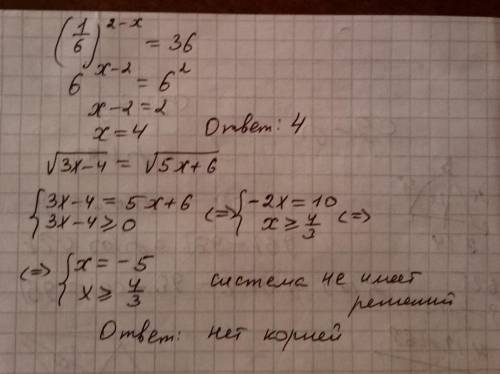 (1/6)^(2-x) = 36
6^(x-2) = 6^2
x-2=2
x=4 Ответ: 4
√(3x-4) = √(5x+6)
{3x-4 = 5x+6 (=) {-2x=10
{3x-4≥0 {x≥4/3 (=)
(=) {x=-5 система не имеет
{x≥4/3 решений
Ответ: нет корней